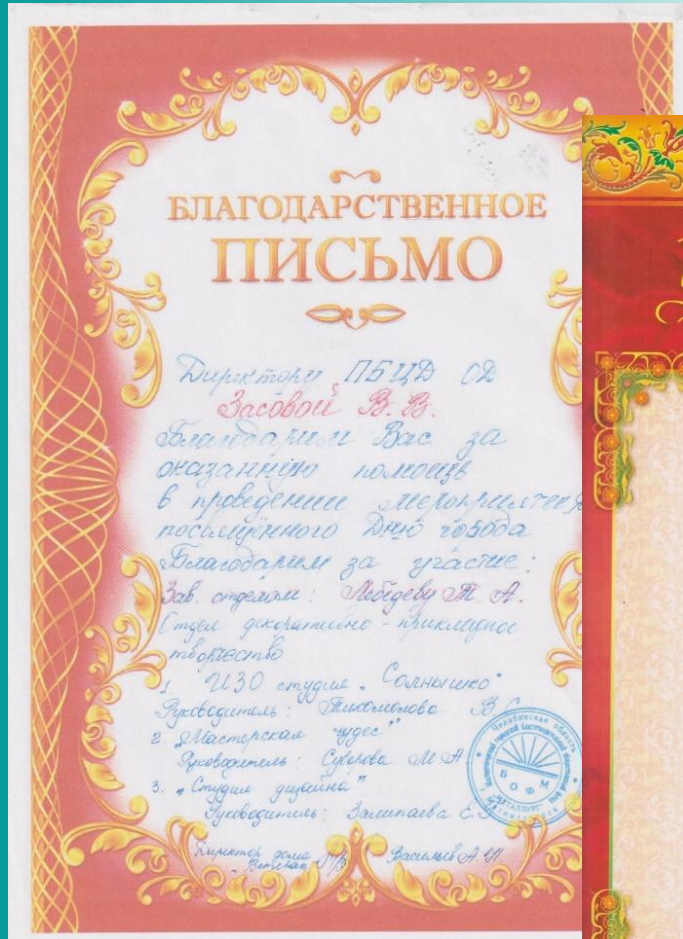 БЛАГОДАРСТВЕННОЕ
ПИСЬМО
Директору ПБЦД ОД
Засовой В. В.
Благодарим Вас за
оказанную помощь
в проведении мероприятия
посвящённого Дню города
Благодарим за участие:
Зав. отделом: Лебедеву Т. А.
Отдел декоративно-прикладное
творчество
1. ИЗО студия "Солнышко"
Руководитель: Тихомолова В
2. "Мастерская чудес"
Руководитель: Сухорова М А
3. "Студия дизайна"
Руководитель: Залипаева Е.
Директор дома
"Ветеран" Васильев А.
Челябинская область
БОФМ
"МЕТАЛЛУРГ"
г. Магнитогорск